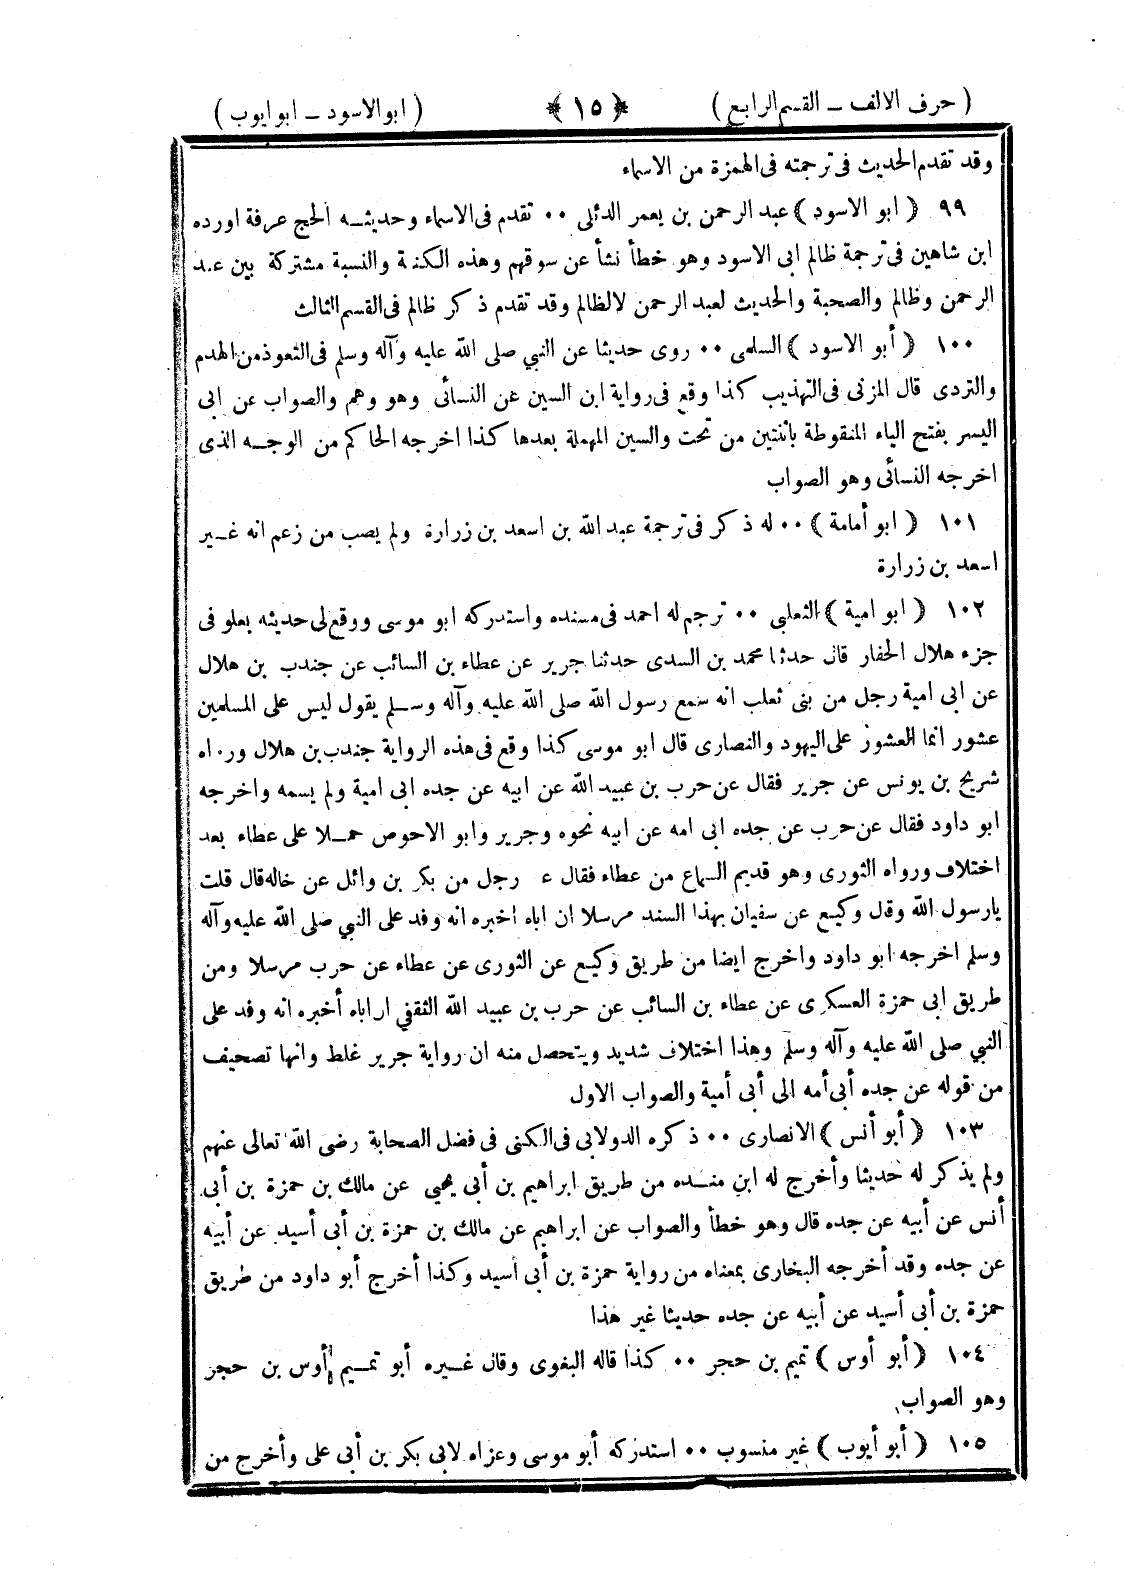 ( حرف الالف – القسم الرابع ) ﴿ ١٥ ﴾ ( ابو الاسود – ابو ايوب )
وقد تقدم الحديث فى ترجمته فى الهمزة من الاسماء
٩٩ ( ابو الاسود ) عبد الرحمن بن يعمر الدئلى ٠٠ تقدم فى الاسماء وحديثـــه الحج عرفة اورده
ابن شاهين فى ترجمة ظالم ابى الاسود وهو خطأ نشأ عن سوقهم وهذه الكنية والنسبة مشتركة بين عبد
الرحمن وظالم والصحبة والحديث لعبد الرحمن لالظالم وقد تقدم ذكر ظالم فى القسم الثالث
١٠٠ ( أبو الاسود ) السلمى ٠٠ روى حديثا عن النبي صلى الله عليه وآله وسلم فى التعوذ من الهدم
والتردى قال المزنى فى التهذيب كذا وقع فى رواية ابن السين عن النسائى وهو وهم والصواب عن ابى
اليسر بفتح الياء المنقوطة باثنتين من تحت والسين المهملة بعدها كذا اخرجه الحاكم من الوجــه الذى
اخرجه النسائى وهو الصواب
١٠١ ( ابو أمامة ) ٠٠ له ذكر فى ترجمة عبد الله بن اسعد بن زرارة ولم يصب من زعم انه غــير
اسعد بن زرارة
١٠٢ ( ابو امية ) الثعلبى ٠٠ ترجم له احمد فى مسنده واستدركه ابو موسى ووقع لى حديثه بعلو فى
جزء هلال الحفار قال حدثنا محمد بن السدى حدثنا جرير عن عطاء بن السائب عن جندب بن هلال
عن ابى امية رجل من بنى ثعلب انه سمع رسول الله صلى الله عليه وآله وســلم يقول ليس على المسلمين
عشور انما العشور على اليهود والنصارى قال ابو موسى كذا وقع فى هذه الرواية جندب بن هلال ورواه
شريح بن يونس عن جرير فقال عن حرب بن عبيد الله عن ابيه عن جده ابى امية ولم يسمه واخرجه
ابو داود فقال عن حرب عن جده ابى امه عن ابيه نحوه وجرير وابو الاحوص حمــلا على عطاء بعد
اختلاف ورواه الثورى وهو قديم السماع من عطاء فقال ع رجل من بكر بن وائل عن خاله قال قلت
يارسول الله وقال وكيــع عن سفيان بهذا السند مرسلا ان اباه اخبره انه وفد على النبي صلى الله عليه وآله
وسلم اخرجه ابو داود واخرج ايضا من طريق وكيــع عن الثورى عن عطاء عن حرب مرسلا ومن
طريق ابى حمزة العسكرى عن عطاء بن السائب عن حرب بن عبيد الله الثقفي ان اباه أخبره انه وفد على
النبي صلى الله عليه وآله وسلم وهذا اختلاف شديد ويتحصل منه ان رواية جرير غلط وانها تصحيف
من قوله عن جده أبى أمه الى أبى أمية والصواب الاول
١٠٣ ( أبو أنس ) الانصارى ٠٠ ذكره الدولابى فى الكنى فى فضل الصحابة رضى الله تعالى عنهم
ولم يذكر له حديثا وأخرج له ابن منــده من طريق ابراهيم بن أبى يحيى عن مالك بن حمزة بن أبى
أنس عن أبيه عن جده قال وهو خطأ والصواب عن ابراهيم عن مالك بن حمزة بن أبى أسيد عن أبيه
عن جده وقد أخرجه البخارى بمعناه من رواية حمزة بن أبى أسيد وكذا أخرج أبو داود من طريق
حمزة بن أبى أسيد عن أبيه عن جده حديثا غير هذا
١٠٤ ( أبو أوس ) تميم بن حجر ٠٠ كذا قاله البغوى وقال غــيره أبو تمــيم أوس بن حجر
وهو الصواب
١٠٥ ( أبو أيوب ) غير منسوب ٠٠ استدركه أبو موسى وعزاه لابى بكر بن أبى على وأخرج من